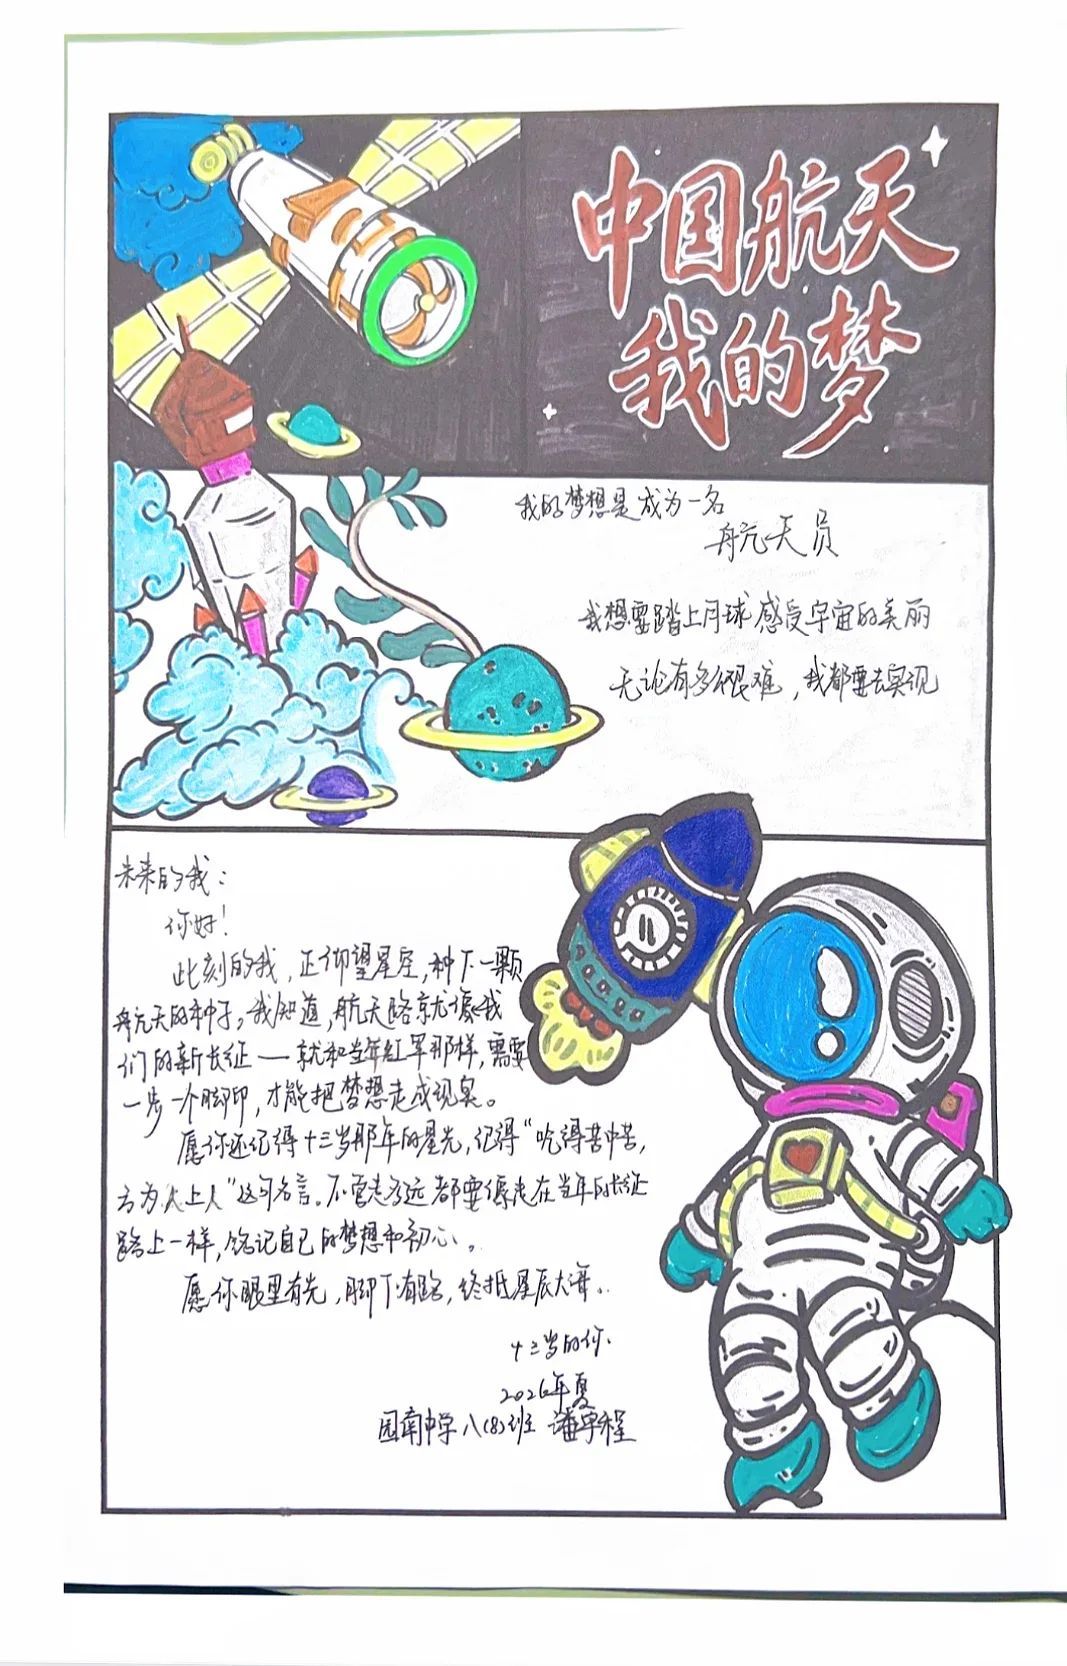 中国航天
我的梦
我的梦想是成为一名
航天员
我想要踏上月球感受宇宙的美丽
无论有多么艰难，我都要去实现
未来的我：
你好！
此刻的我，正仰望星空，种下一颗
航天的种子，我知道，航天路就像我
们的新长征——就和当年红军那样，需要
一步一个脚印，才能把梦想走成现实。
愿你还记得十三岁那年的星光，记得“吃得苦中苦，
方为人上人”这句名言。不管走多远都要像走在当年的长征
路上一样，铭记自己的梦想和初心。
愿你眼里有光，脚下有路，终抵星辰大海。
十三岁的你.
2026年夏
园南中学八(8)班 潘宇程